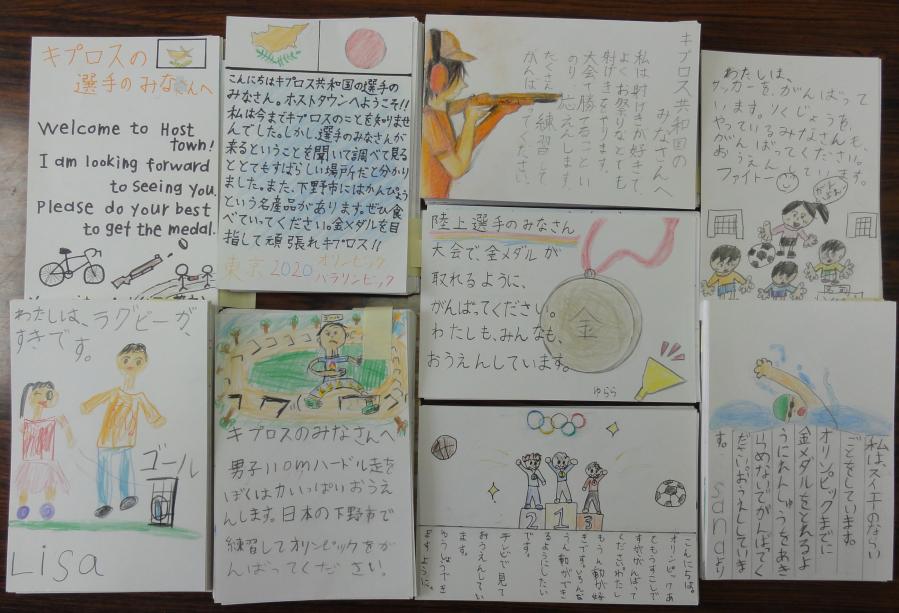 キプロスの
選手のみなさんへ
Welcome to Host
town!
I am looking forward
to seeing you.
Please do your best
to get the medal.
こんにちはキプロス共和国の選手の
みなさん。ホストタウンへようこそ!!
私は今までキプロスのことを知りませ
んでした。しかし、選手のみなさんが
来るということを聞いて調べて見る
ととてもすばらしい場所だと分かり
ました。また、下野市にはかんぴょう
という名産品があります。ぜひ食
べていってください。金メダルを目
指して頑張れキプロス!!
東京2020オリンピック
パラリンピック
キプロス共和国の
みなさんへ
私は射げきが好きで、
よくお祭りなどでも
射げきをやります。
大会で勝てることをい
のり、応えんします。
たくさん練習して
がんばってください。
わたしは、
サッカーを、がんばって
います。りくじょうを、
やっているみなさんも、
がんばってください。
おうえんしています。
ファイトー
がんばれ!
陸上選手のみなさん
大会で、金メダルが
取れるように、
がんばってください。
わたしも、みんなも、
おうえんしています。
金
ゆらら
わたしは、ラグビーが、
すきです。
ゴール
Lisa
キプロスのみなさんへ
男子110mハードル走を
ぼくは力いっぱいおうえ
んします。日本の下野市で
練習してオリンピックをが
んばってください!
2 1 3
こんにちは。
オリンピックあ
てもうすこしで
すががんばって
ください。わたし
もうん動が好
きです。いろんな
うん動ができ
るようにしたい
です。
テレビで見て
おうえんしてい
ます。
ゆうしょうでき
ますように。
私は、スイエイのならい
ごとをしています。
オリンピックまでに
金メダルをとれるよ
うにれんしゅうをあき
らめないでがんばってく
ださい。おうえんしていま
す。 sanaより